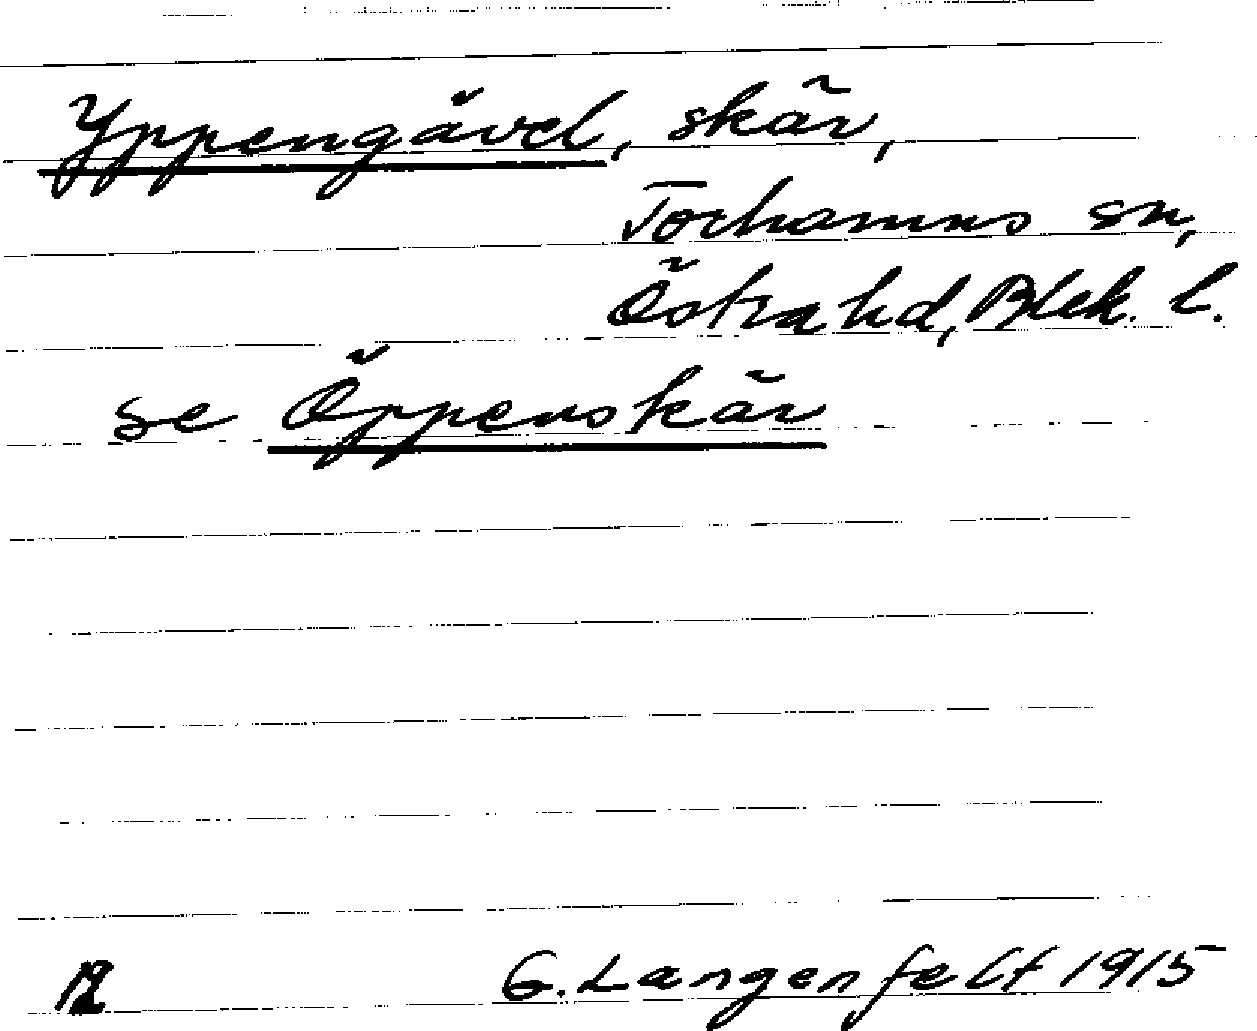 Yppengävel, skär,
Torhamns sn,
Östra hd, Blek. l.
se Öppenskär
G. Langenfelt 1915